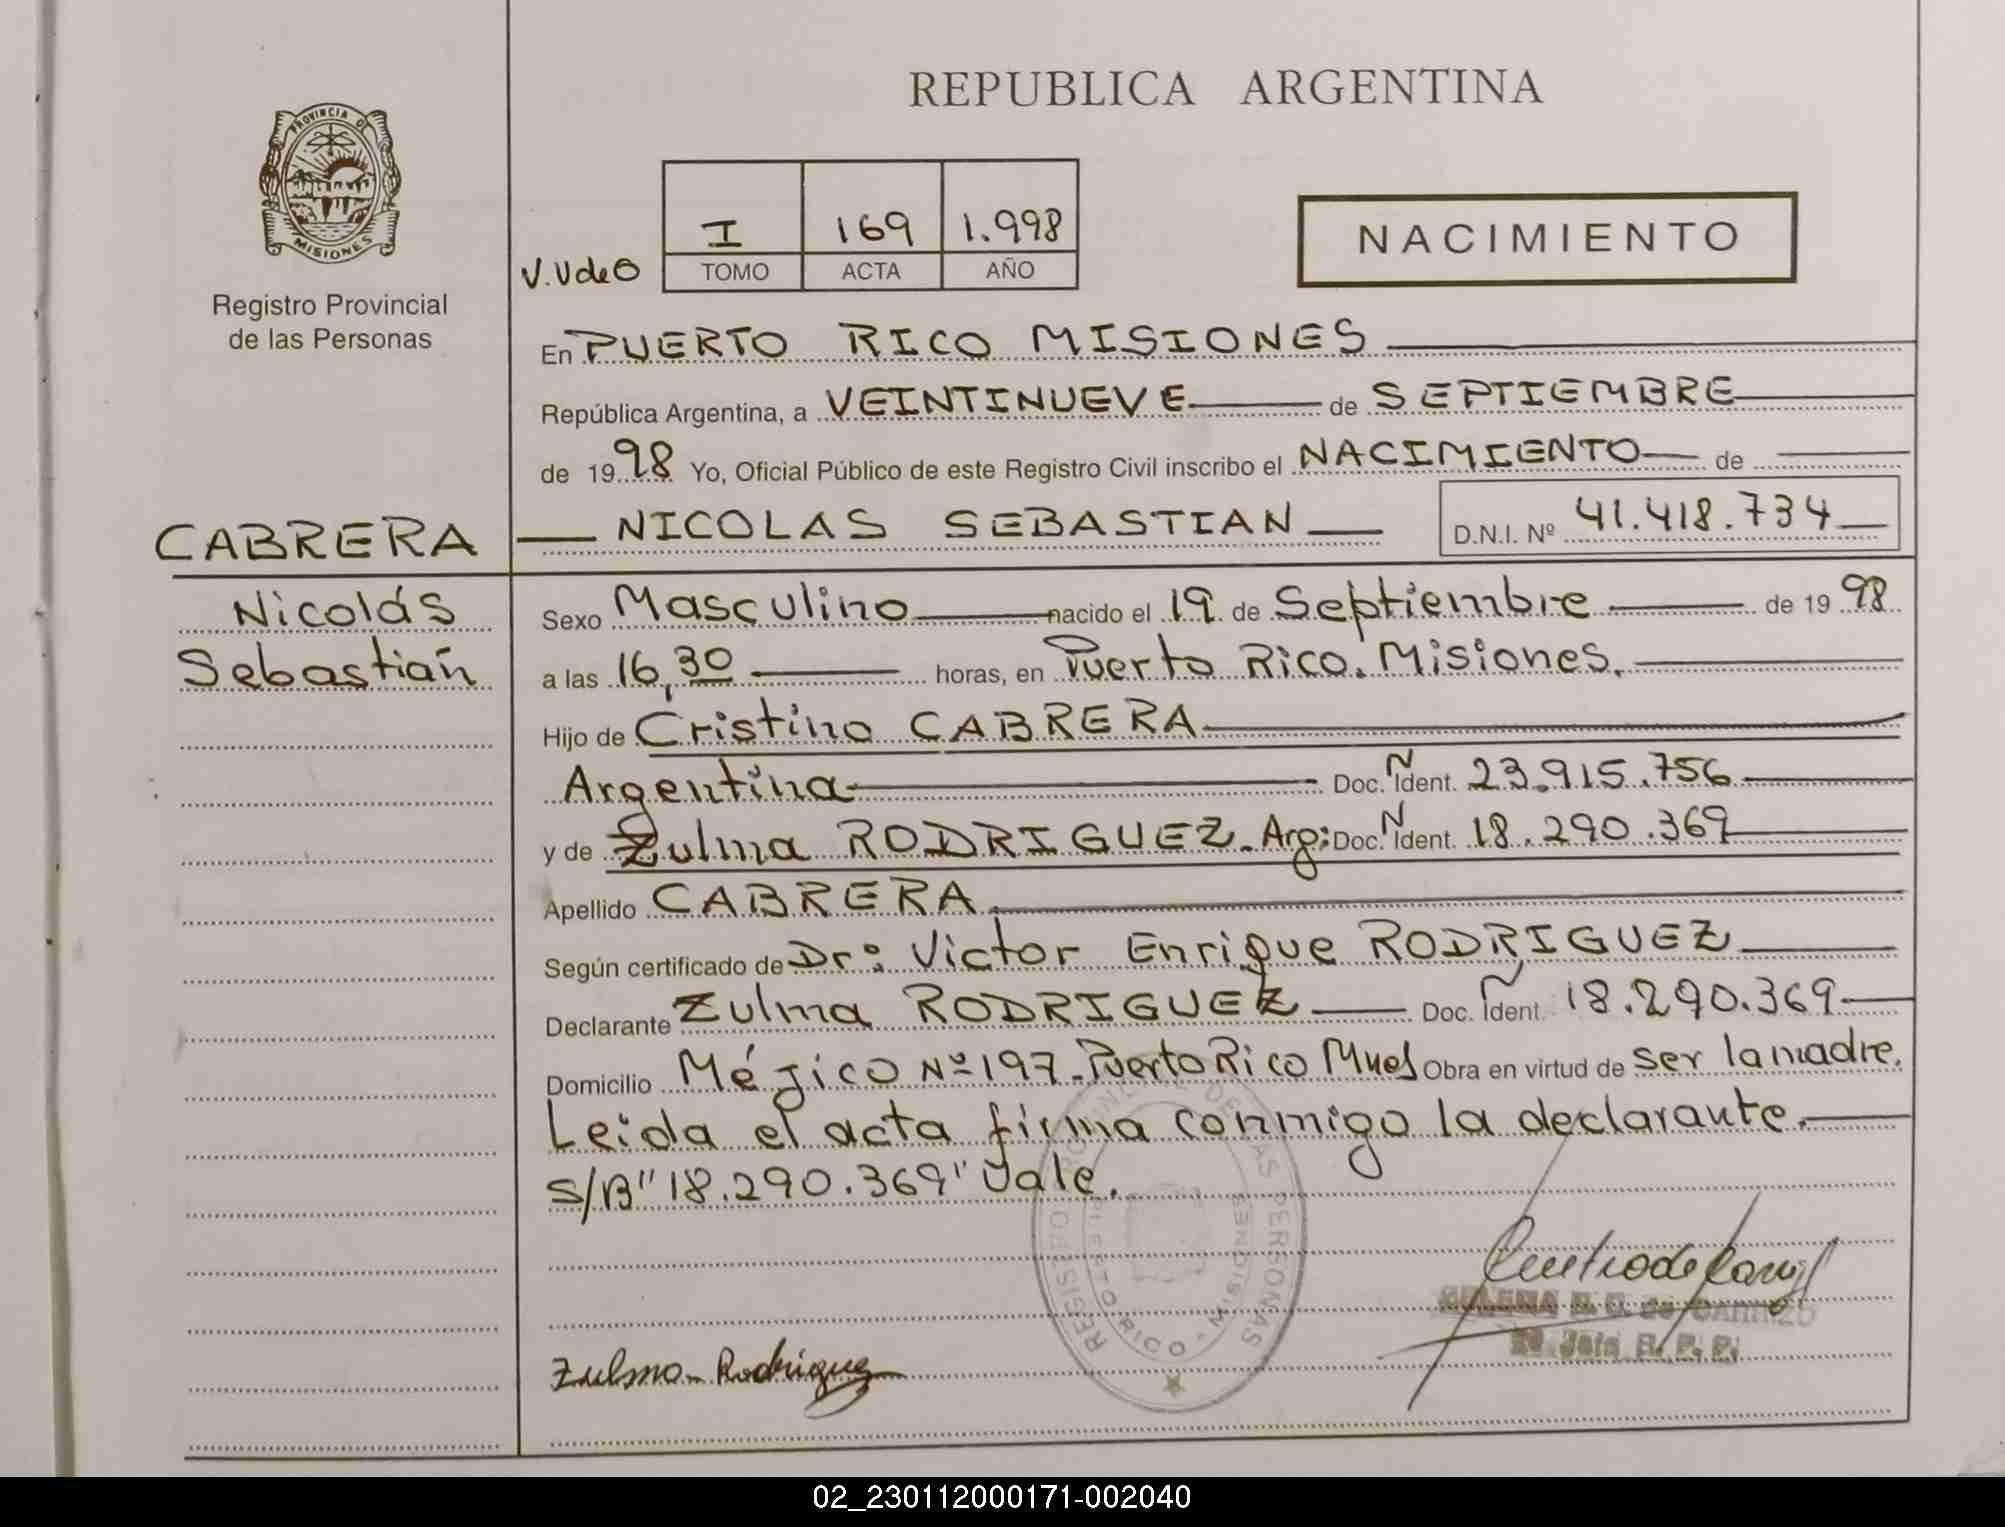 REPUBLICA ARGENTINA
PROVINCIA DE
MISIONES
Registro Provincial
de las Personas
I 169 1.998
V.Vdeo TOMO ACTA AÑO
NACIMIENTO
En PUERTO RICO MISIONES
República Argentina, a VEINTINUEVE de SEPTIEMBRE
de 1998 Yo, Oficial Público de este Registro Civil inscribo el NACIMIENTO de
CABRERA NICOLAS SEBASTIAN D.N.I. Nº 41.418.734
Nicolás
Sebastián
Sexo Masculino nacido el 19 de Septiembre de 1998
a las 16,30 horas, en Puerto Rico. Misiones.
Hijo de Cristino CABRERA
Argentina Doc. N Ident. 23.915.756
y de Zulma RODRIGUEZ. Arg: Doc. N Ident. 18.290.369
Apellido CABRERA.
Según certificado de Dr: Victor Enrique RODRIGUEZ
Declarante Zulma RODRIGUEZ Doc. N Ident. 18.290.369
Domicilio Méjico Nº 197-Puerto Rico Mnes Obra en virtud de ser la madre.
Leida el acta firma conmigo la declarante.
S/B"18.290.369" Vale.
REGISTRO PROVINCIAL DE LAS PERSONAS
PUERTO RICO - MISIONES
Zulma Rodriguez
02_230112000171-002040